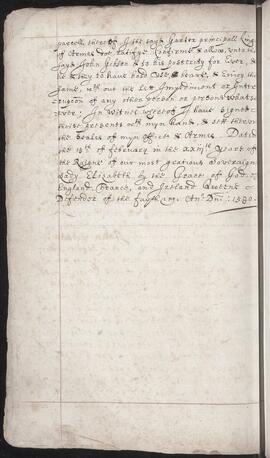 parcell thereof I the sayd Garter principall King
of Armes doe ratifye Confirme & allow, unto the
sayd John & to his posterity for Ever, &
he & they to have hold Use, & beare, & Enioy the
same, wth out the Lett Impediment or Inter=
ruption of any other person or persons whatso
ever; In Witnes whereof I have signed
these presents wth myn hand, & sett thereun
the Seales of myn office & Armes. Dated
the 18th of february in the XXIIIth Yeare of
the Reigne of our most gratious Soveraigne
Lady Elizabeth by the Grace of God, of
England, France, and Ireland Queene
Defender of the fayth &c. Ano. Dni: 1580.